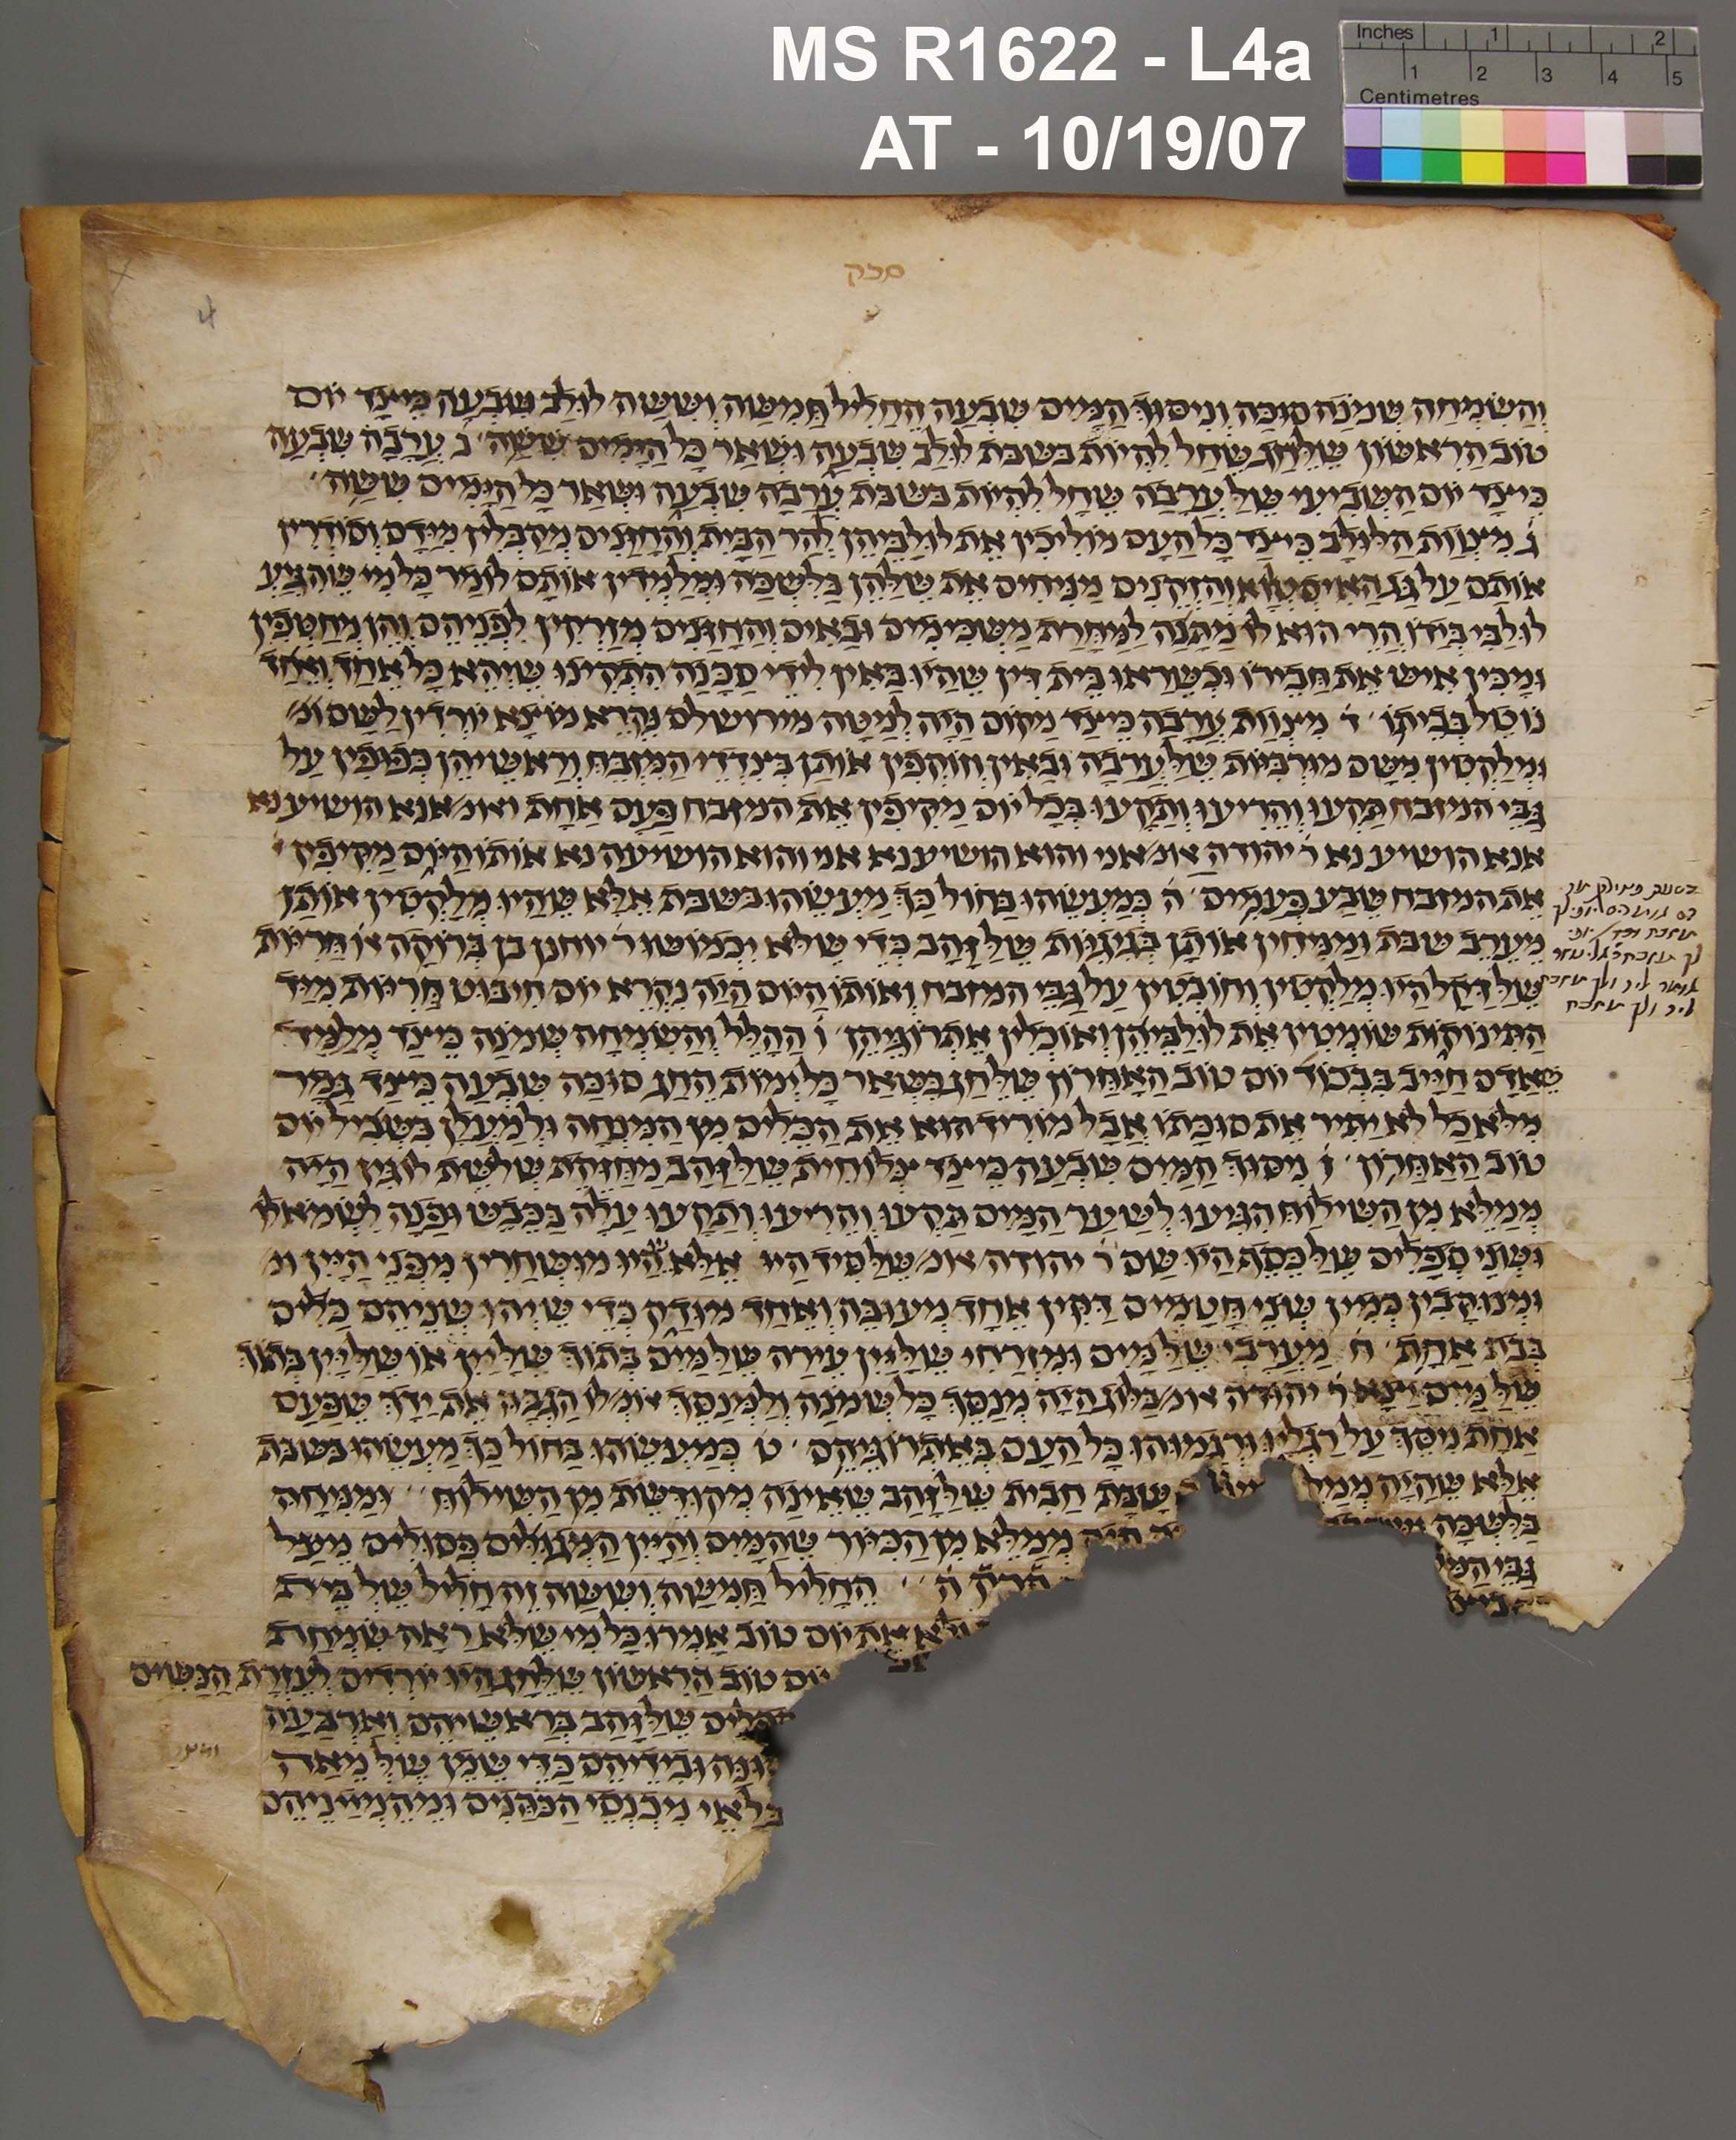 MS R1622 - L4a
AT - 10/19/07
Inches 1 2
1 2 3 4 5
Centimetres
4
והשמחה שמנה סוכה וניסוך המים שבעה החליל חמשה וששה לולב שבעה כיצד יום
טוב הראשון שלחג שחל להיות בשבת לולב שבעה ושאר כל הימים ששה ב ערבה שבעה
כיצד יום השביעי של ערבה שחל להיות בשבת ערבה שבעה ושאר כל הימים ששה
ג מיצות הלולב כיצד כל העם מוליכין את לולביהן להר הבית והחזנים מקבלין מידם וסודרין
אותם על גג האיסטוא והזקנים מניחים את שלהן בלשכה ומלמדין אותם לומר כל מי שהגיע
לולבי בידו הרי הוא לו מתנה למחרת משכימים ובאים והחזנים מזרקין לפניהם והן מחטפין
ומכין איש את חבירו וכשראו בית דין שהיו באין לידי סכנה התקינו שיהא כל אחד ואחד
נוטל בביתו ד מיצות ערבה כיצד מקום היה למטה מירושלם נקרא מוצא יורדין לשם
ומלקטין משם מורביות של ערבה ובאין וזוקפין אותן בצדדי המזבח וראשיהן כפופין על
גבי המזבח תקעו והריעו ותקעו בכל יום מקיפין את המזבח פעם אחת ואומ אנא הושיע נא
אנא הושיע נא ר יהודה אומ אני והוא הושיע נא אני והוא הושיעה נא אותו היום מקיפין
את המזבח שבע פעמים ה כמעשהו בחול כך מעשהו בשבת אלא שהיו מלקטין אותן
מערב שבת ומניחין אותן בגיגיות שלזהב כדי שלא יכמושו ר יוחנן בן ברוקה או חריות
שלדקל היו מלקטין וחובטין על גבי המזבח ואותו היום היה נקרא יום חיבוט חריות מיד
התינוקות שומטין את לולביהן ואוכלין אתרוגיהן ו ההלל והשמחה שמנה כיצד מלמד
שאדם חייב בכבוד יום טוב האחרון שלחג כשאר כל ימות החג סוכה שבעה כיצד גמר
מלאכל לא יתיר את סוכתו אבל מוריד הוא את הכלים מן המנחה ולמעלן בשביל יום
טוב האחרון ז ניסוך המים שבעה כיצד צלוחית שלזהב מחזקת שלשת לוגין היה
ממלא מן השילוח הגיעו לשער המים תקעו והריעו ותקעו עלה בכבש ופנה לשמאלו
ושני ספלים שלכסף היו שם ר יהודה אומ שלסיד היו אלא שהיו מושחרין מפני היין
ומנוקבין כמין שני חטמים דקין אחד מעובה ואחד מודק כדי שיהו שניהם כלים
בבת אחת ח מערבי שלמים ומזרחי שליין עירה שלמים בתוך שליין או שליין בתוך
שלמים יצא ר יהודה אומ בלוג היה מנסך כל שמונה ולמנסך אומ לו הגבה את ידך שפעם
אחת ניסך על רגליו ורגמוהו כל העם באתרוגיהם ט כמעשהו בחול כך מעשהו בשבת
אלא שהיה ממל שבת חבית שלזהב שאינה מקודשת מן השילוח ומניחה
בלשכה היה ממלא מן הכיור שהמים והיין המגולים פסולים מעל
גבי המ פרק ה החליל חמשה וששה זה חליל של בית
ולא את יום טוב אמרו כל מי שלא ראה שמחת
יום טוב הראשון שלחג היו יורדים לעזרת הנשים
ספלים שלזהב בראשיהם וארבעה
ובידיהם כדי שמן של מאה
בלאי מכנסי הכהנים ומהמיניהם